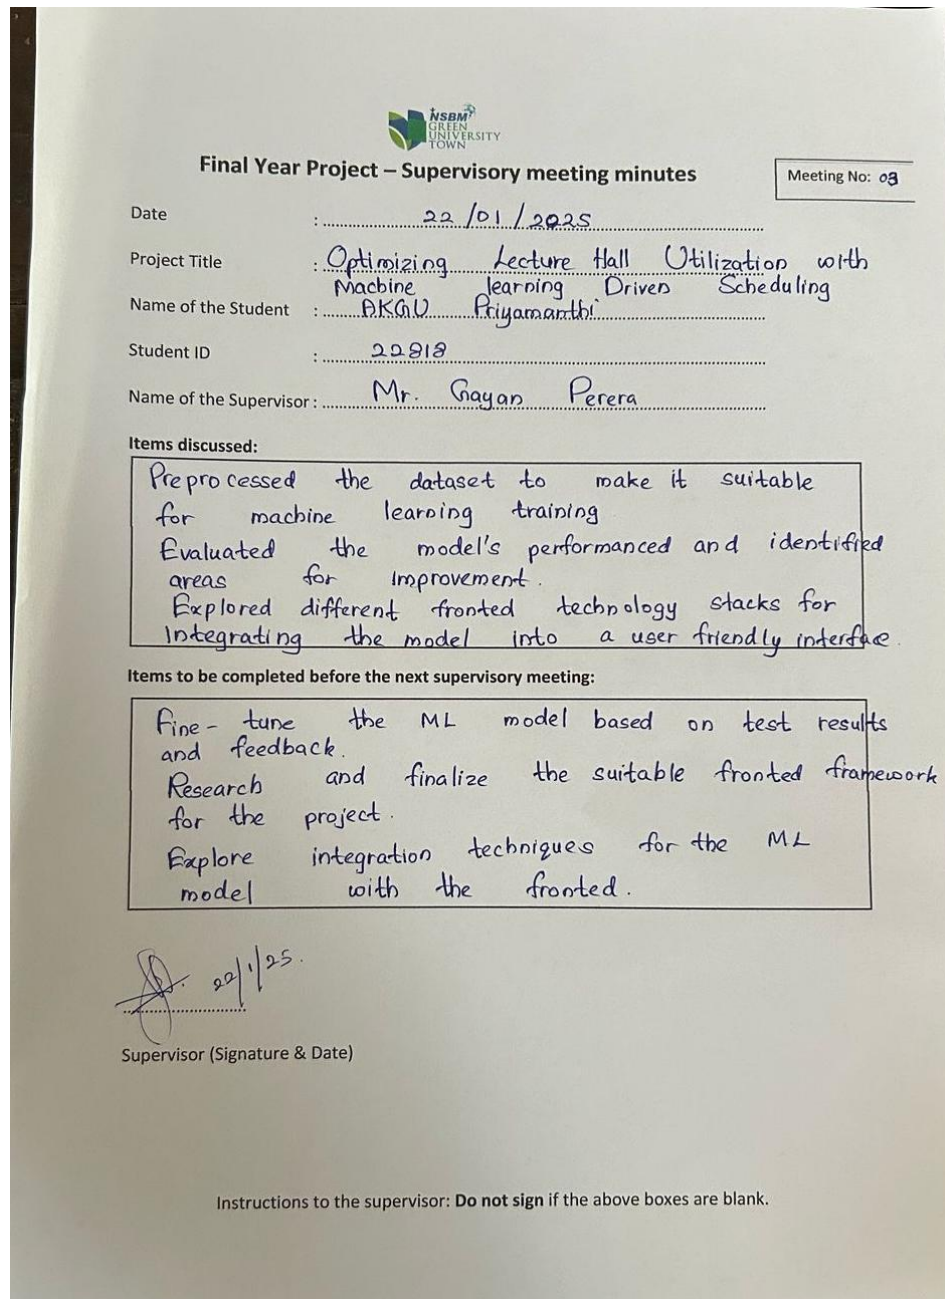 NSBM
GREEN
UNIVERSITY
TOWN
Final Year Project – Supervisory meeting minutes
Meeting No: 03
Date : 22/01/2025
Project Title : Optimizing Lecture Hall Utilization with
Machine learning Driven Scheduling
Name of the Student : AKGU Priyamanthi
Student ID : 22818
Name of the Supervisor : Mr. Gayan Perera
Items discussed:
Preprocessed the dataset to make it suitable
for machine learning training
Evaluated the model's performanced and identified
areas for improvement.
Explored different fronted technology stacks for
Integrating the model into a user friendly interfce.
Items to be completed before the next supervisory meeting:
Fine-tune the ML model based on test results
and feedback.
Research and finalize the suitable fronted framework
for the project.
Explore integration techniques for the ML
model with the fronted.
22/1/25.
Supervisor (Signature & Date)
Instructions to the supervisor: Do not sign if the above boxes are blank.